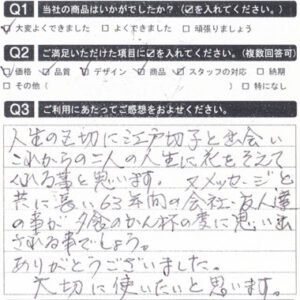 Q1 当社の商品はいかがでしたか?(☑を入れてください。)
☑大変よくできました □よくできました □頑張りましょう
Q2 ご満足いただけた項目に☑を入れてください。(複数回答可)
☑価格 ☑品質 ☑デザイン ☑商品 ☑スタッフの対応 □納期
□その他( ) □特になし
Q3 ご利用にあたってご感想をおよせください。
人生の区切に江戸切子と出会い
これからの二人の人生に花をそえて
くれる事と思います。又メッセージと
共に長い63年間の会社・友人達
の事が夕食のかん杯の度に思い出
される事でしょう。
ありがとうございました。
大切に使いたいと思います。